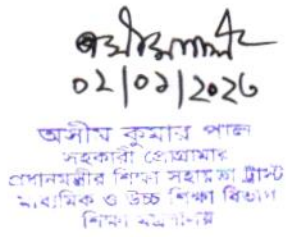 ০২|০১|২০২৩
অসীম কুমার পাল
সহকারী প্রোগ্রামার
প্রধানমন্ত্রীর শিক্ষা সহায়তা ট্রাস্ট
মাধ্যমিক ও উচ্চ শিক্ষা বিভাগ
শিক্ষা মন্ত্রণালয়